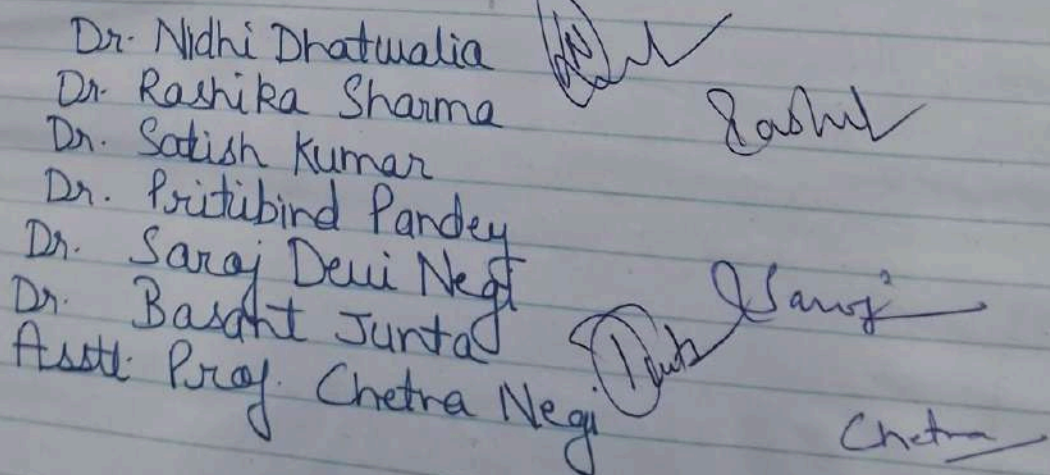 Dr. Nidhi Dhatwalia
Dr. Rashika Sharma Rashik
Dr. Satish Kumar
Dr. Pritibind Pandey
Dr. Saroj Devi Negi Saroj
Dr. Basant Junta
Asstt. Prof. Chetna Negi Chetna